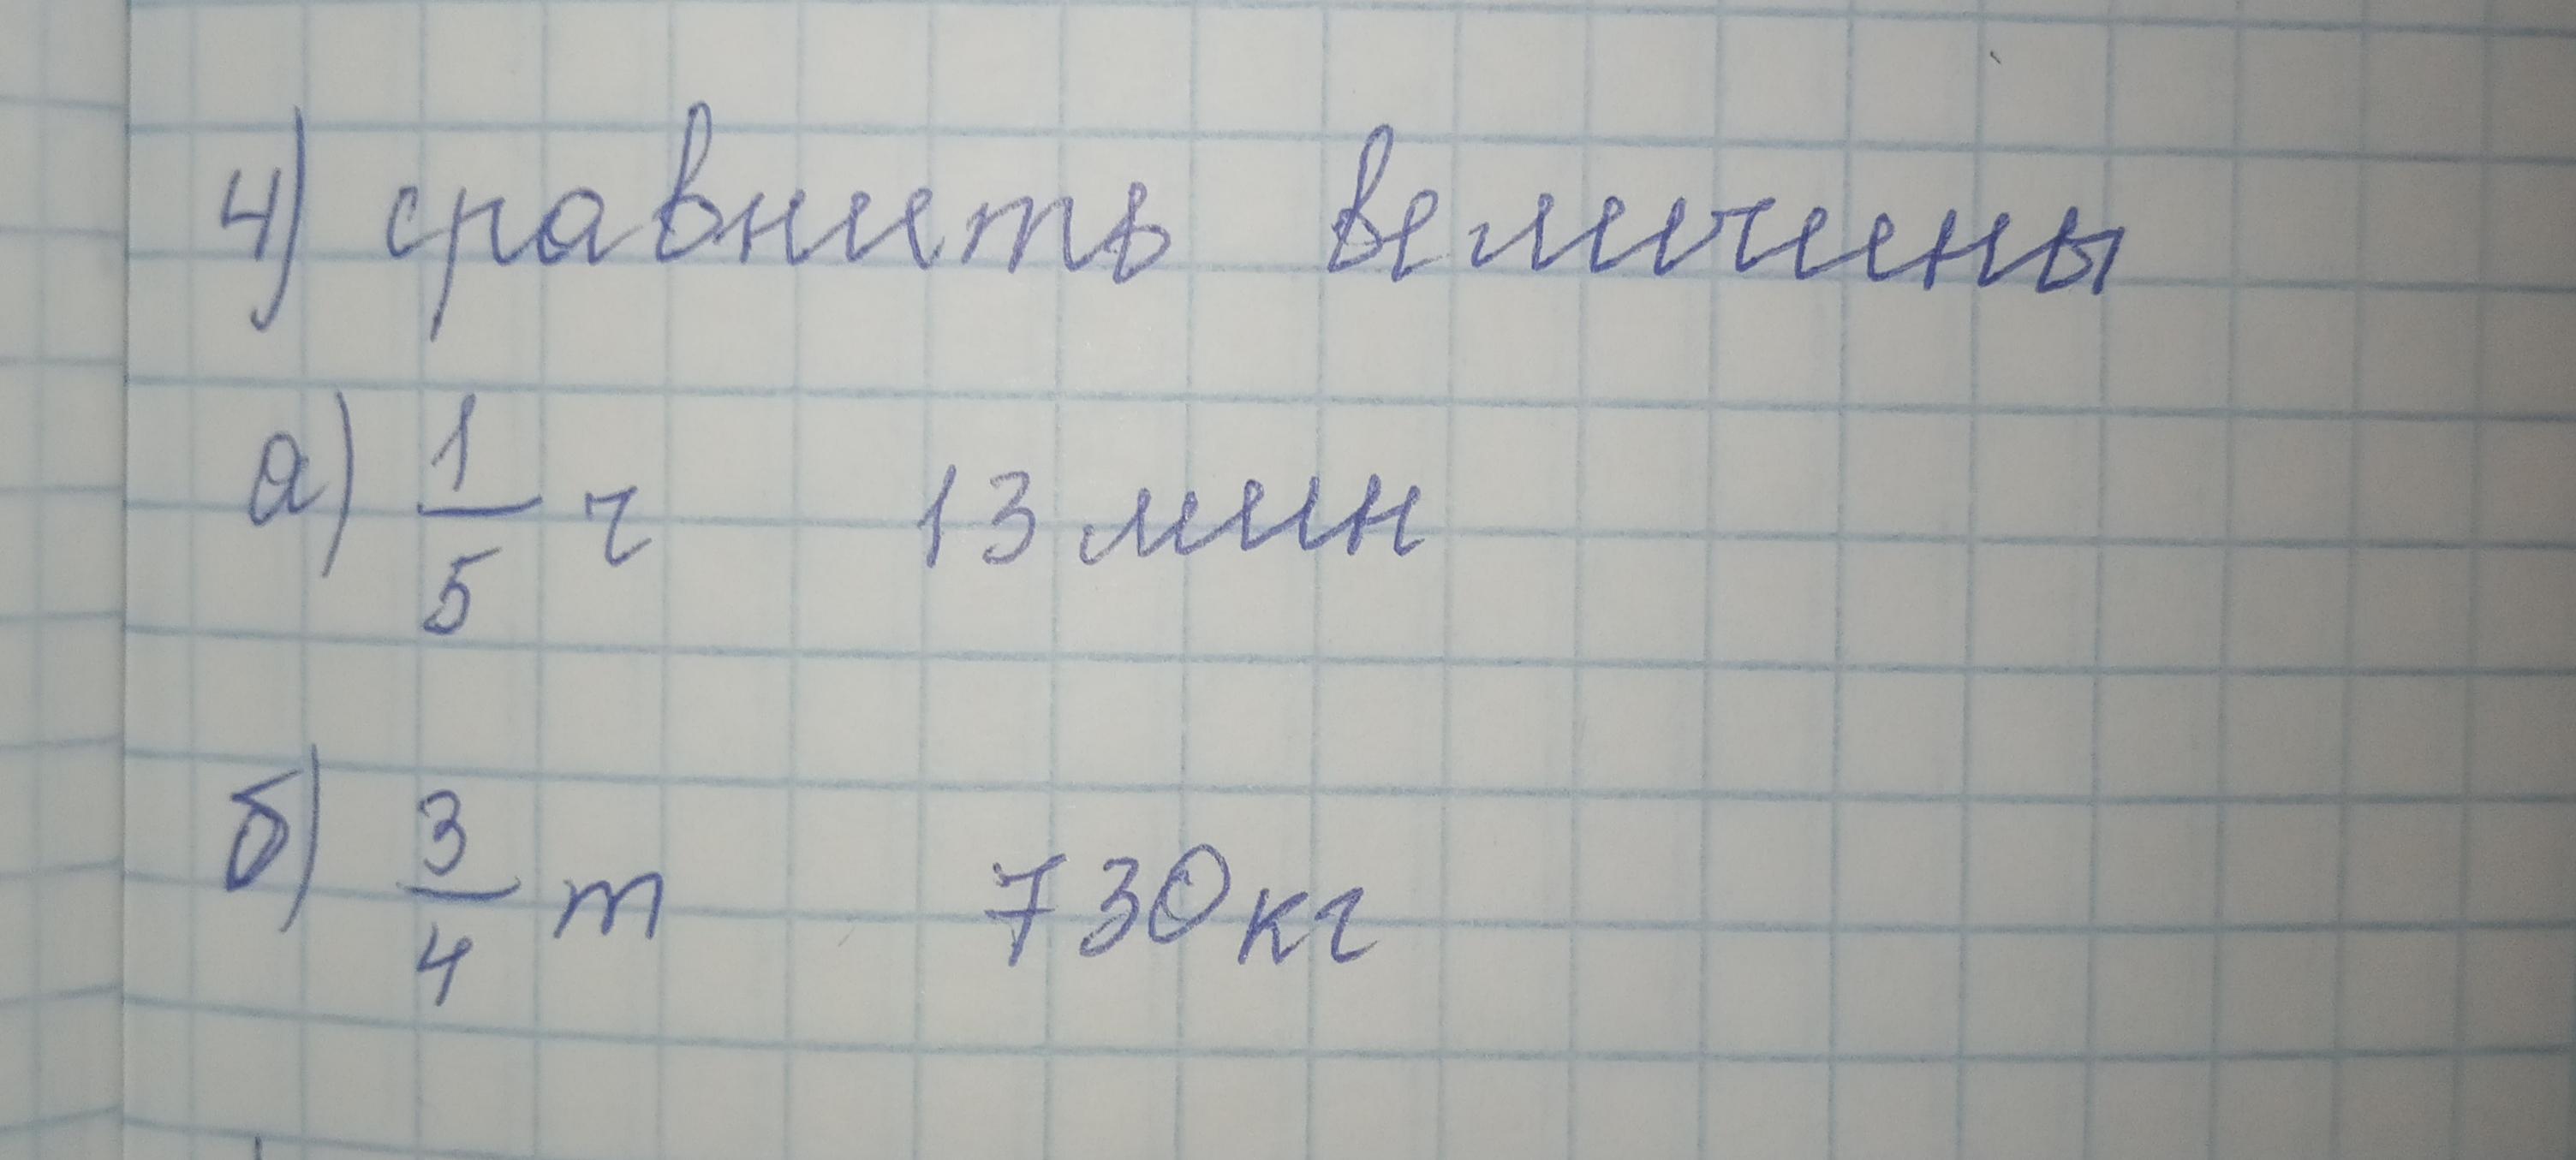 4) сравнить величины
а) 1/5 ч 13 мин
б) 3/4 т 730 кг